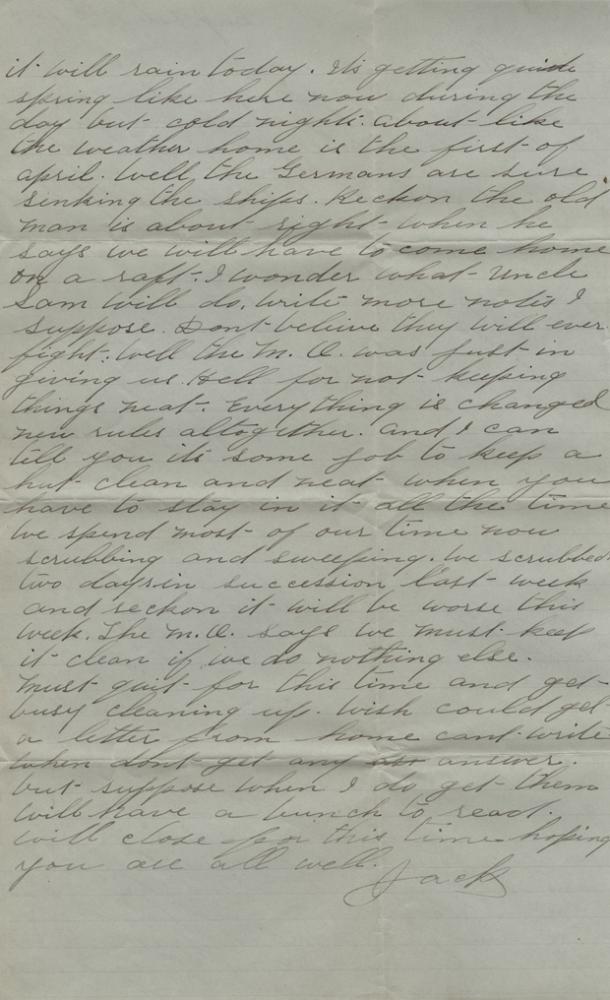 it will rain today. Its getting quite
spring like here now during the
day but cold nights. about like
the weather home is the first of
april. Well the Germans are sure
sinking the ships. Reckon the old
man is about right when he
says we will have to come home
on a raft. I wonder what Uncle
Sam will do. write more notes I
suppose. Dont believe they will ever
fight. well the M.O. was just in
giving us Hell for not keeping
things neat. Everything is changed
new rules altogether. and I can
tell you its some job to keep a
hut clean and neat when you
have to stay in it all the time
we spend most of our time now
scrubbing and sweeping. We scrubbed
two days in succession last week
and reckon it will be worse this
week. The M.O. says we must keep
it clean if we do nothing else.
must quit for this time and get
busy cleaning up. Wish could get
a letter from home cant write
when dont get any answer.
but suppose when I do get them
will have a bunch to read.
will close for this time hoping
you are all well.
Jack